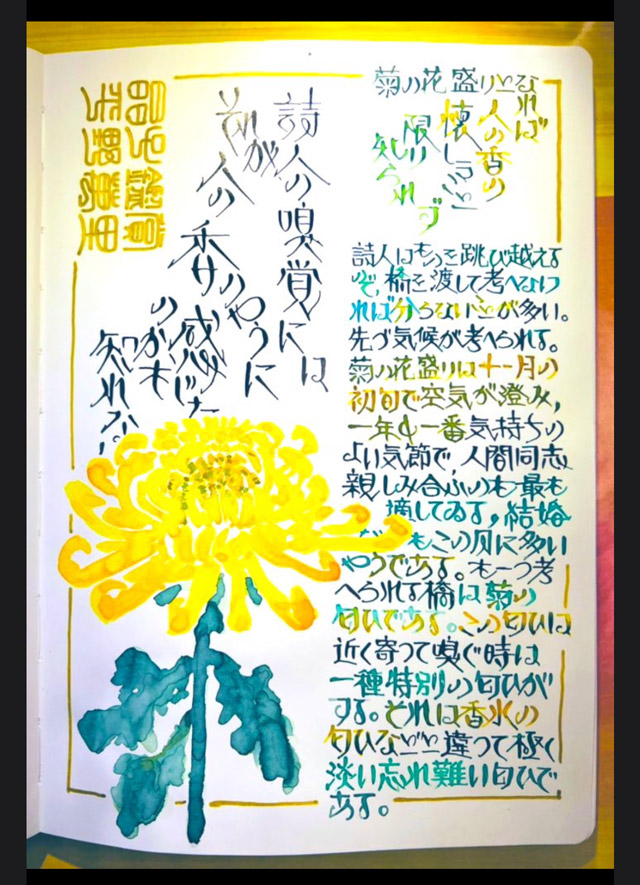 菊の花盛りとな
れば
人の香の
懐しきこと
限り
知られず
詩人はものを跳び越える
ので、橋を渡して考へなけ
れば分らないことが多い。
先づ気候が考へられる。
菊の花盛りは十一月の
初旬で空気が澄み,
一年中一番気持ちの
よい気節で,人間同志
親しみ合ふのも最も
適してゐる,結婚
もこの月に多い
やうである。も一つ考
へられる橋は菊の
匂ひである。この匂ひは
近く寄つて嗅ぐ時は
一種特別の匂ひが
する。それは香水の
匂ひなどと違つて極く
淡い忘れ難い匂ひで
ある。
詩人の嗅覚には
それが
人の香
のやうに
感じた
のかも
知れない。
晶子鑑賞
平野萬里